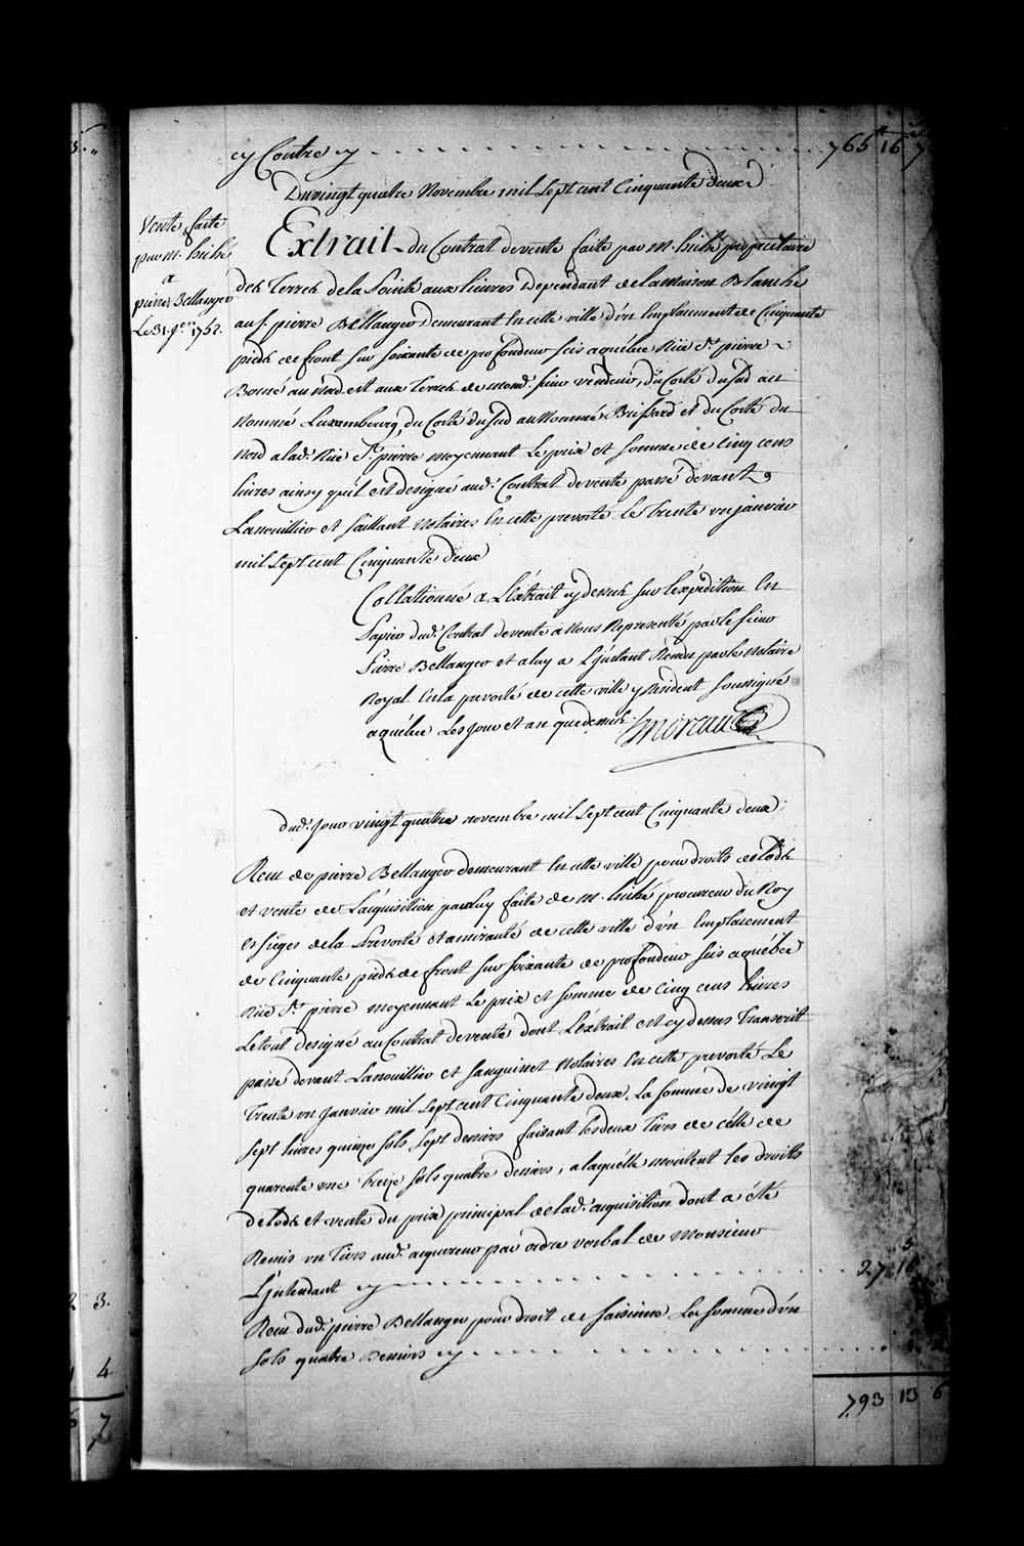 cy Contre cy 765 16 7
Du vingt quatre Novembre mil Sept cent Cinquante deux
Vente faite
par M. hiché
a
pierre Bellanger
Le 31. Jer. 1752.
Extrait du Contrat de vente faite par M. hiché proprietaire
des Terres de la Pointe aux lievres Dependant de la maison Blanche
au S. pierre Bellanger demeurant En cette ville d'vn Emplacement de Cinquante
pieds de front sur soixante de profondeur scis a quebec Rüe St. pierre
Borné au aux Terres de mond. sieur vendeur, du Costé du Sud au
Nommé Luxembourg, du Costé du Sud au Nommé Brissard et du Costé du
Nord a lad. Rüe St. pierre moyennant Le prix et somme de Cinq cens
livres ainsy qu'il est designé aud. Contrat de vente passé devant
Lanoullier et Saillant Notaires En cette prevosté le trente vn janvier
mil Sept cent Cinquante deux
Collationné a L'extrait cy dessus sur L'expedition En
Papier dud. Contrat de vente a Nous Representé par le sieur
Pierre Bellanger et a luy a L'jnstant Rendu par le Notaire
Royal En la prevosté de cette ville y Resident soussigné
a québec Les jour et an que dessus. Moreau
dud. jour vingt quatre novembre mil Sept cent Cinquante deux
Recu de pierre Bellanger demeurant En cette ville pour droits de Lods
et vente de L'acquisition par Luy faite de M. hiché procureur du Roy
Es sieges de la Prevosté et amirauté de cette ville d'vn Emplacement
de Cinquante pieds de front sur soixante de profondeur scis a québec
Rüe St. pierre moyennant Le prix et somme de Cinq cens livres
Le tout designé au Contrat de vente dont L'extrait est cy dessus Transcrit
passé devant Lanouillier et Sanguinet Notaires En cette prevosté Le
Trente vn janvier mil Sept cent Cinquante deux, La somme de vingt
Sept livres quinze sols, Sept deniers faisant les deux Tiers de célle de
quarente vne treize sols quatre deniers, a laquélle montent les droits
de Lods et vente du prix principal de lad. acquisition dont a été
Remis vn Tiers aud. acquereur par ordre verbal de Monsieur
L'jntendant cy 27
Recu dud. pierre Bellanger pour droit de saisinne La somme d'vn
sols quatre Deniers cy
793 13 6
3.
4
7